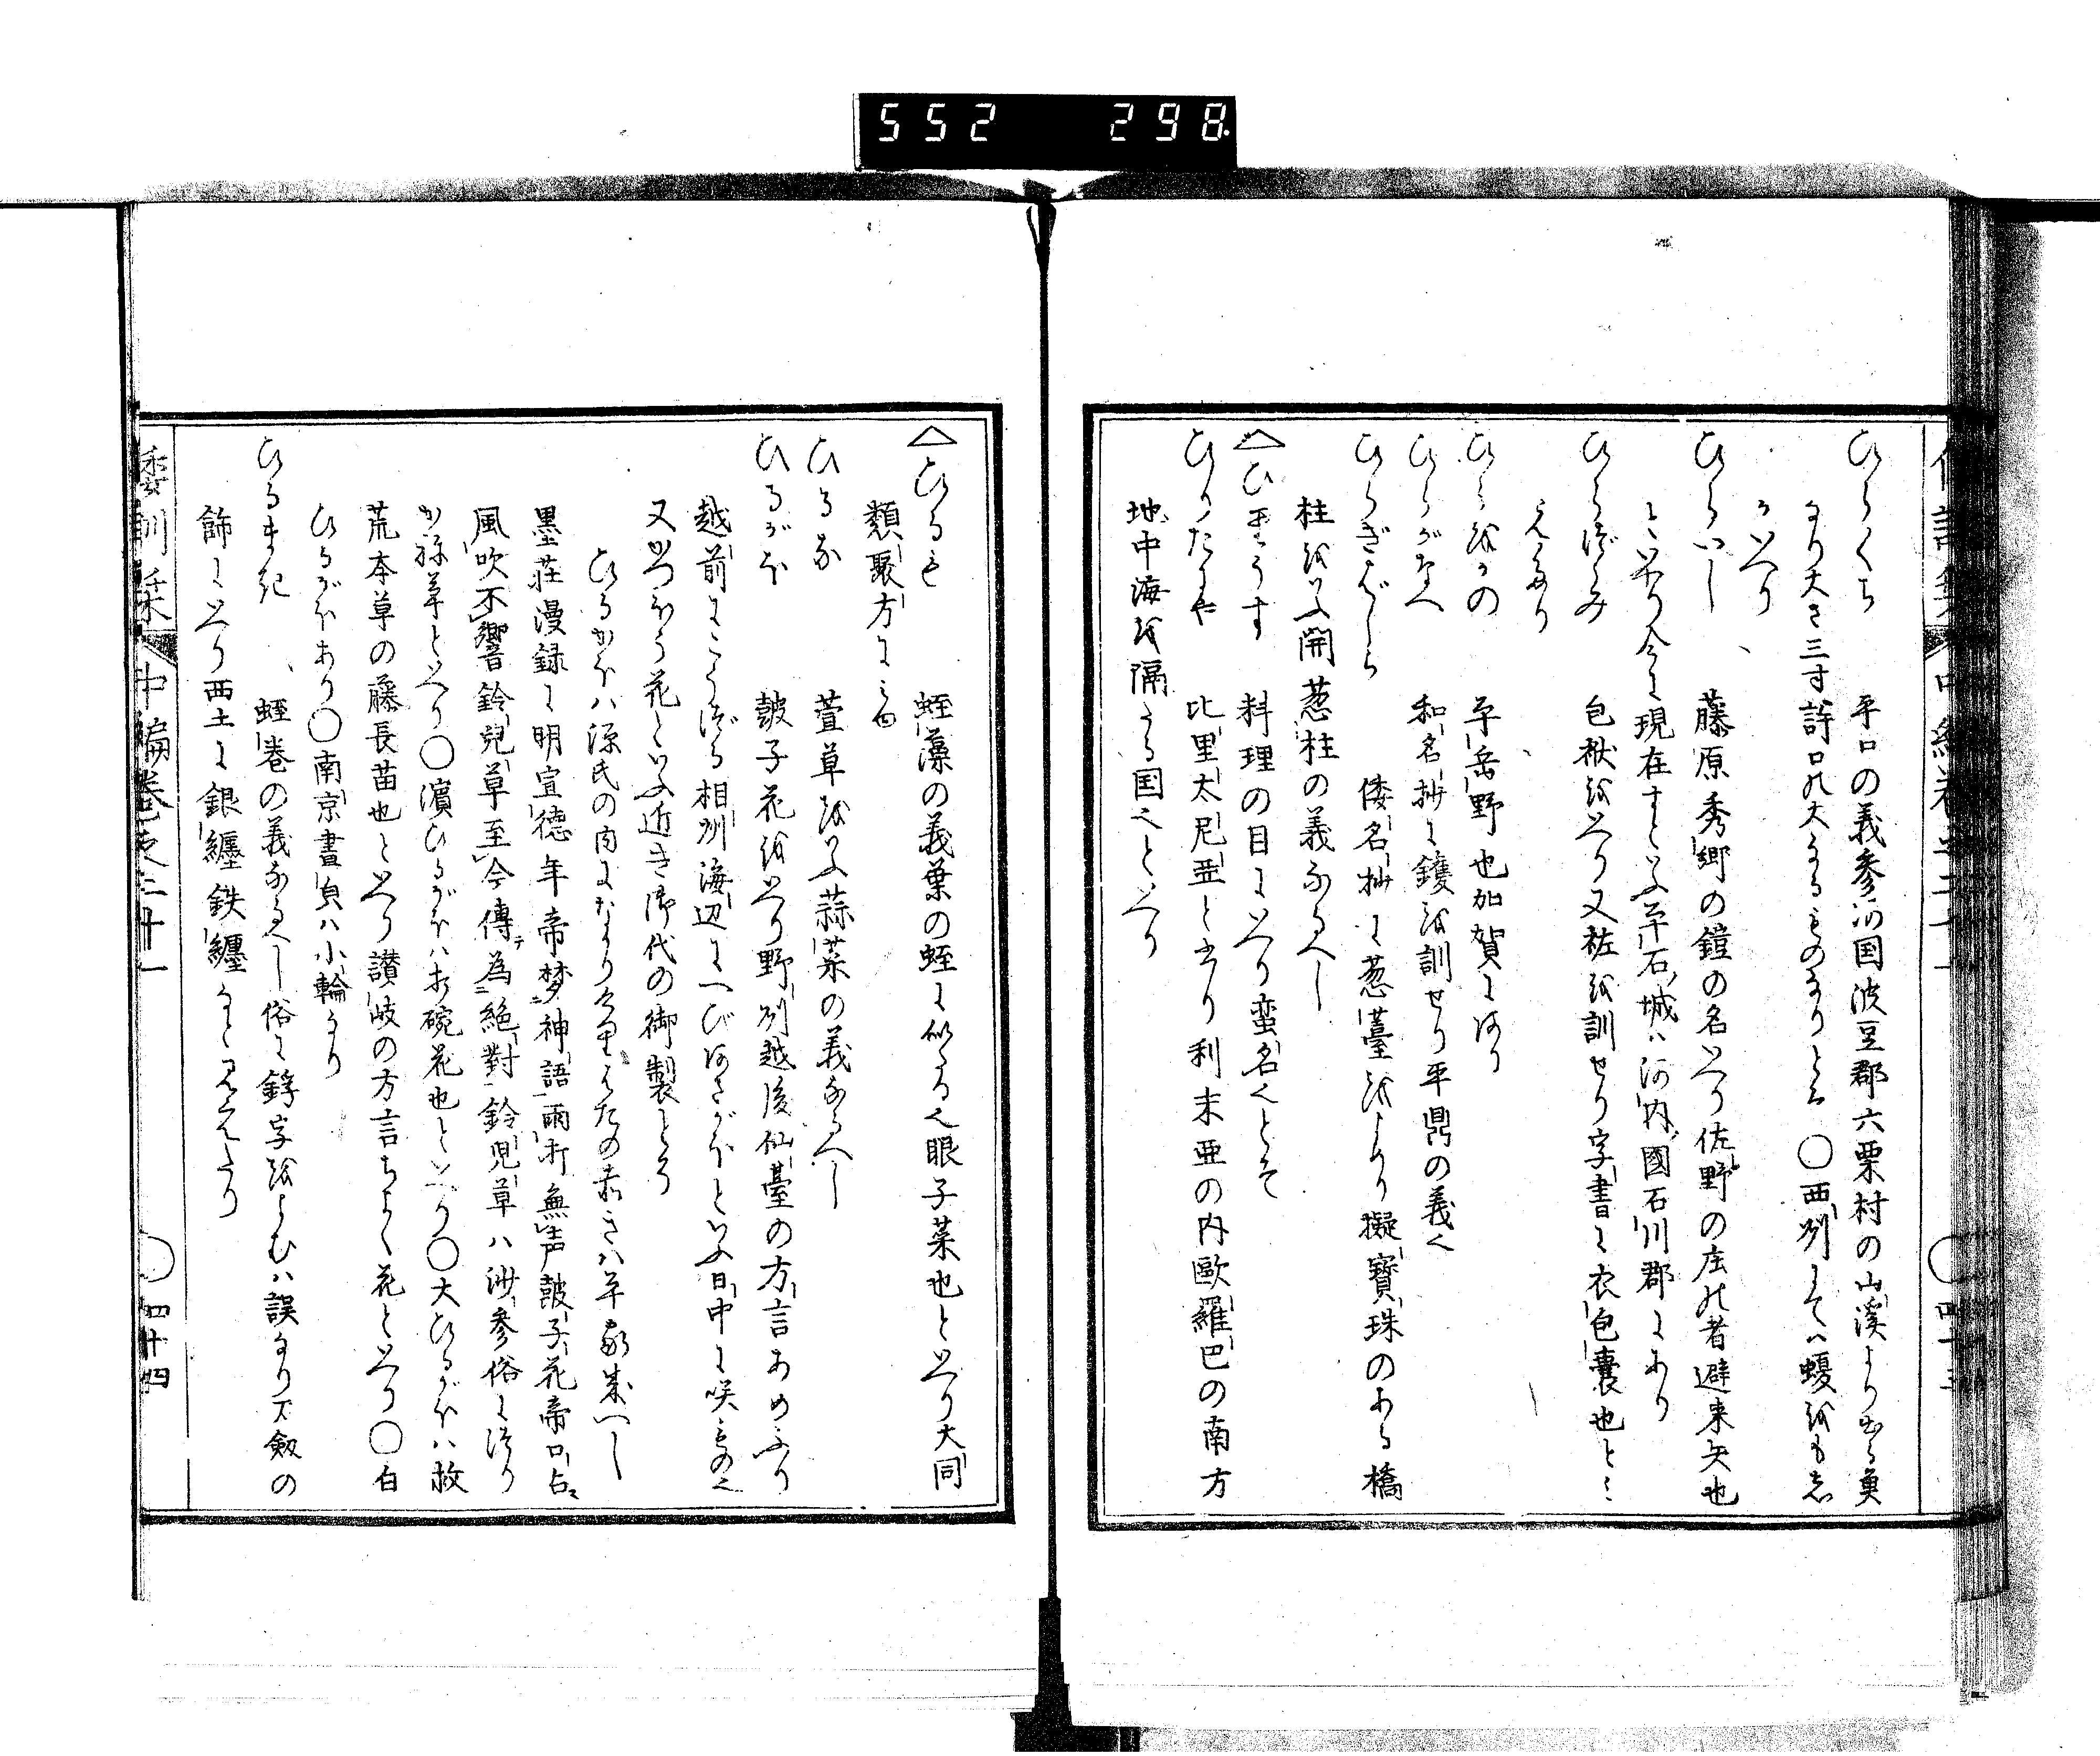 552 298
ひらくち 平口の義参河国波豆郡六栗村の山溪より出る魚
なり大さ三寸許口の大なるものなりとそ ○西州にてハ蝮をもし
かいへり
ひらいし 藤原秀郷の鎧の名といへり佐野の庄の者避来矢也
といへり今に現在すといふ平石城ハ河内國石川郡にあり
ひらづゝみ 包袱をいへり又袥を訓せり字書に衣包嚢也とミ
えたり
ひらをかの 平岳野也加賀にあり
ひらがなへ 和名抄に鑊を訓せり平鼎の義也
ひらぎばしら 倭名抄に葱薹をよめり擬寶珠のある橋
柱をいふ開葱柱の義なるへし
△ひりうす 料理の目にいへり蛮名也とそ
ひりたにや 比里太尼亜と書り利未亜の内歐羅巴の南方
地中海を隔る国也といへり
△ひるも 蛭藻の義葉の蛭に似る也眼子菜也といへり大同
類聚方にミゆ
ひるな 萱草をいふ蒜菜の義なるへし
ひるがほ 皷子花をいへり野州越後仙臺の方言あめふり
越前にこうづる相州海辺にへびあさがほといふ日中に咲もの也
又かつほう花といふ近き御代の御製とそ
ひるかほハ源氏の内になりけりはたの赤きハ平家成へし
墨荘漫録に明宣徳年帝梦神語雨打無声皷子花帝口占
風吹不響鈴兒草至今傳為絶對鈴児草ハ沙参俗につり
かね草といへり○濱ひるがほハ打碗花也といへり○大ひるがほハ救
荒本草の藤長苗也といへり讃岐の方言ちよく花といへり○白
ひるがほあり○南京書貞ハ小輪なり
ひるまき 蛭巻の義なるへし俗に鋝字をよむハ誤なり下剱の
飾にいへり西土に銀纏鉄纏なと見えたり
倭訓栞 中編巻之二十一 ○四十四